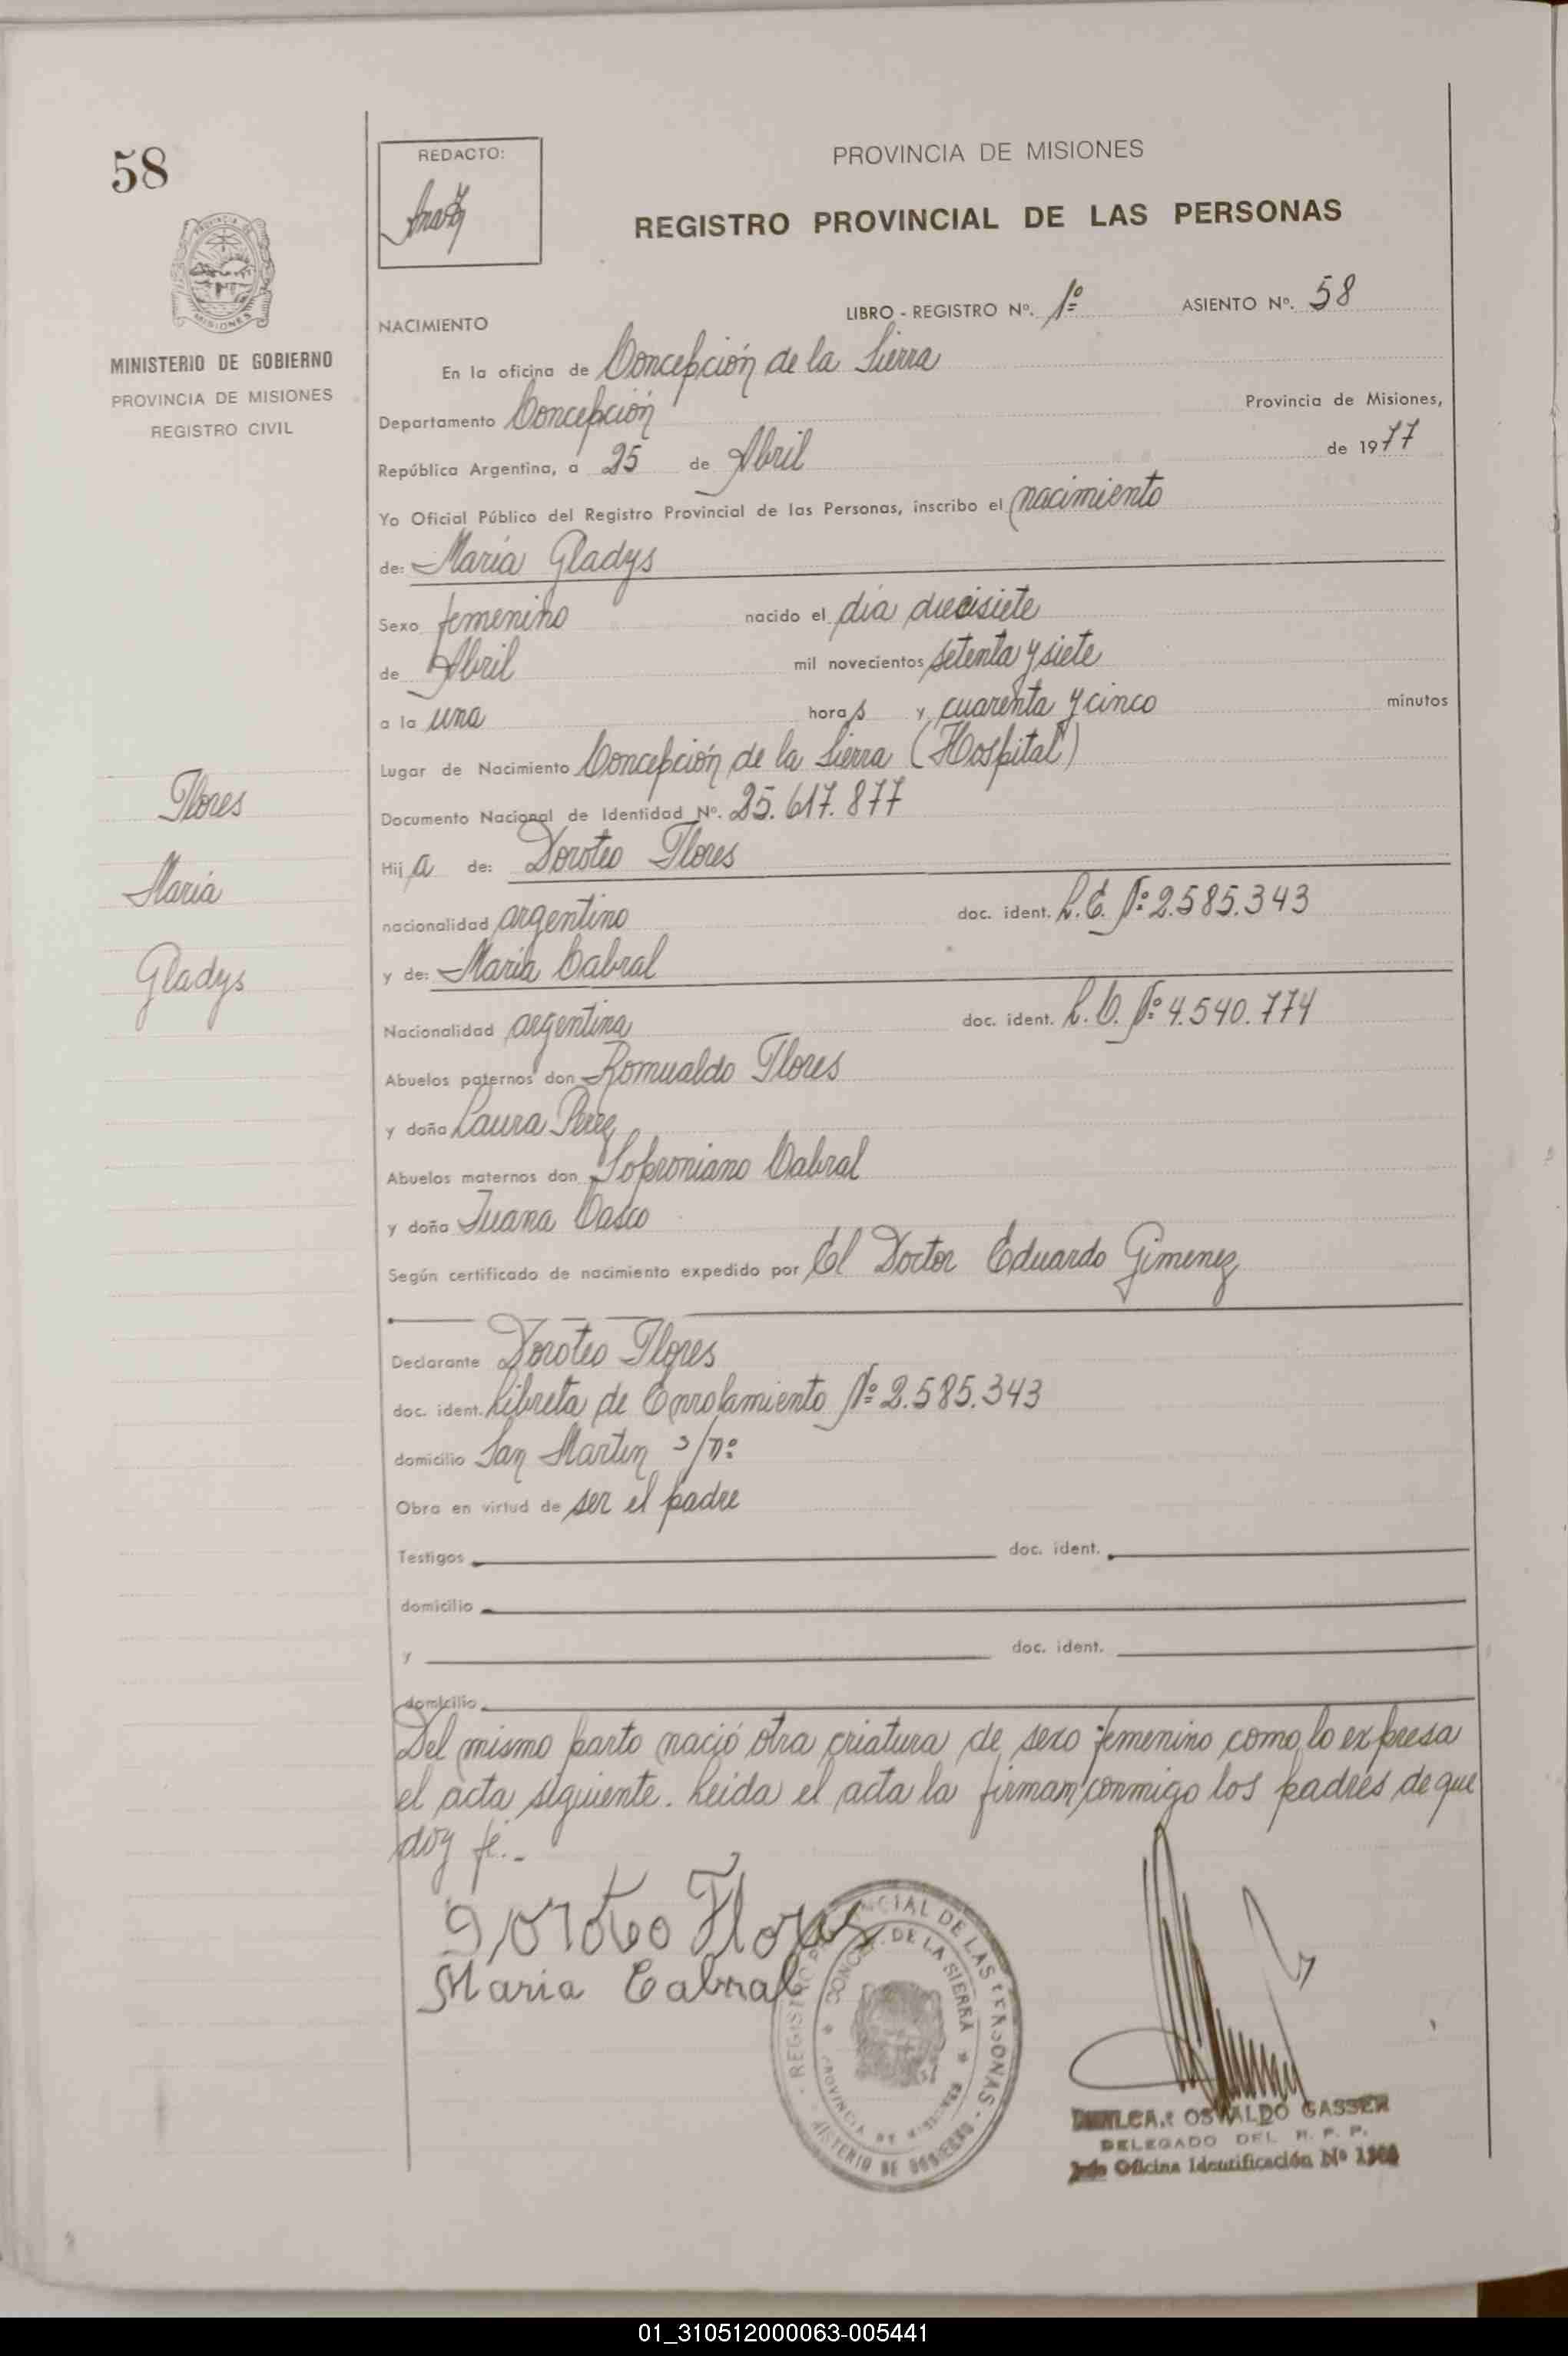 58
REDACTO:
PROVINCIA DE MISIONES
REGISTRO PROVINCIAL DE LAS PERSONAS
PROVINCIA DE
MISIONES
MINISTERIO DE GOBIERNO
PROVINCIA DE MISIONES
REGISTRO CIVIL
LIBRO - REGISTRO Nº. 1º ASIENTO Nº. 58
NACIMIENTO
En la oficina de Concepción de la Sierra
Departamento Concepción Provincia de Misiones,
República Argentina, a 25 de Abril de 1977
Yo Oficial Público del Registro Provincial de las Personas, inscribo el nacimiento
de: María Gladys
Sexo femenino nacido el día diecisiete
de Abril mil novecientos setenta y siete
a la una horas y cuarenta y cinco minutos
Lugar de Nacimiento Concepción de la Sierra (Hospital)
Documento Nacional de Identidad Nº. 25.617.877
Flores
María
Gladys
Hij a de: Doroteo Flores
nacionalidad argentino doc. ident. L.E. Nº 2.585.343
y de: María Cabral
Nacionalidad argentina doc. ident. L.C. Nº 4.540.774
Abuelos paternos don Romualdo Flores
y doña Laura Perez
Abuelos maternos don Soproniano Cabral
y doña Juana Casco
Según certificado de nacimiento expedido por El Doctor Eduardo Gimenez
Declarante Doroteo Flores
doc. ident. Libreta de Enrolamiento Nº 2.585.343
domicilio San Martin s/nº
Obra en virtud de ser el padre
Testigos doc. ident.
domicilio
y doc. ident.
domicilio
Del mismo parto nació otra criatura de sexo femenino como lo expresa
el acta siguiente. Leida el acta la firman conmigo los padres de que
doy fé.-
Doroteo Flores
Maria Cabral
CIAL DE LAS PERSONAS
DE LA SIERRA
PROVINCIA DE MISIONES
OSVALDO GASSER
DELEGADO DEL R. P. P.
Jefe Oficina Identificación Nº
01_310512000063-005441